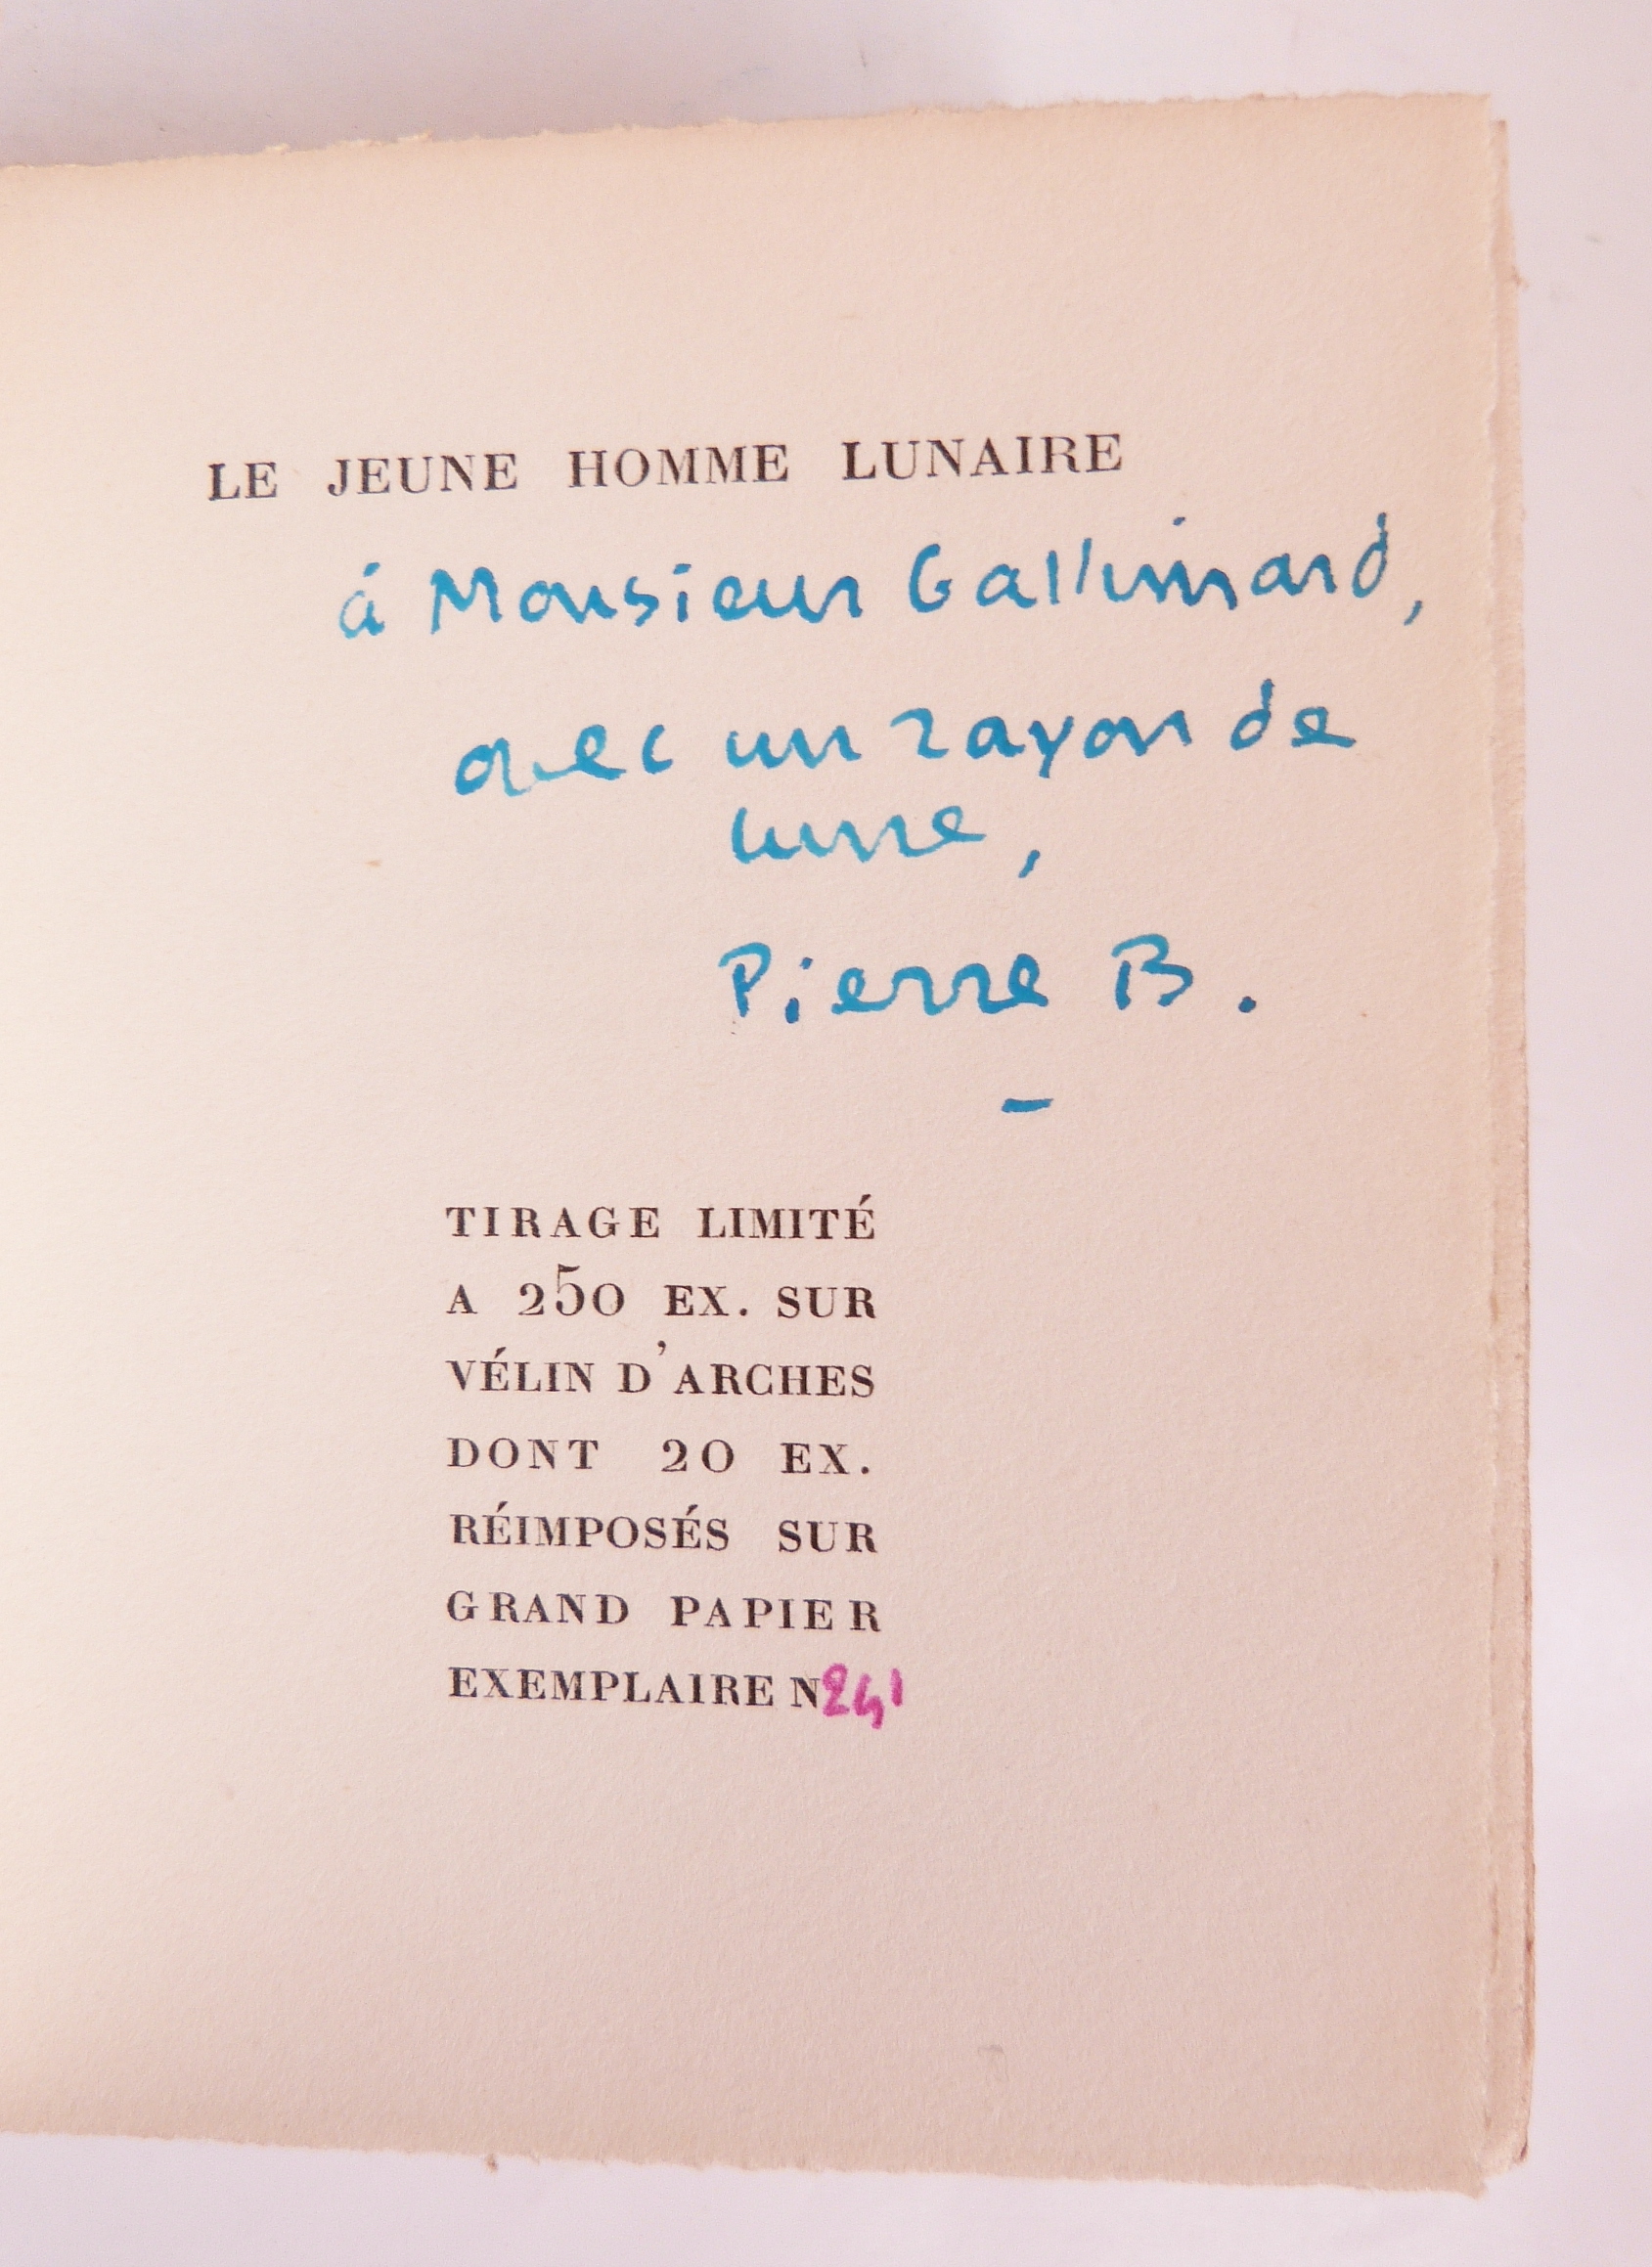 LE JEUNE HOMME LUNAIRE
à Monsieur Gallimard,
avec un rayon de
lune,
Pierre B.
TIRAGE LIMITÉ
A 250 EX. SUR
VÉLIN D'ARCHES
DONT 20 EX.
RÉIMPOSÉS SUR
GRAND PAPIER
EXEMPLAIRE N241